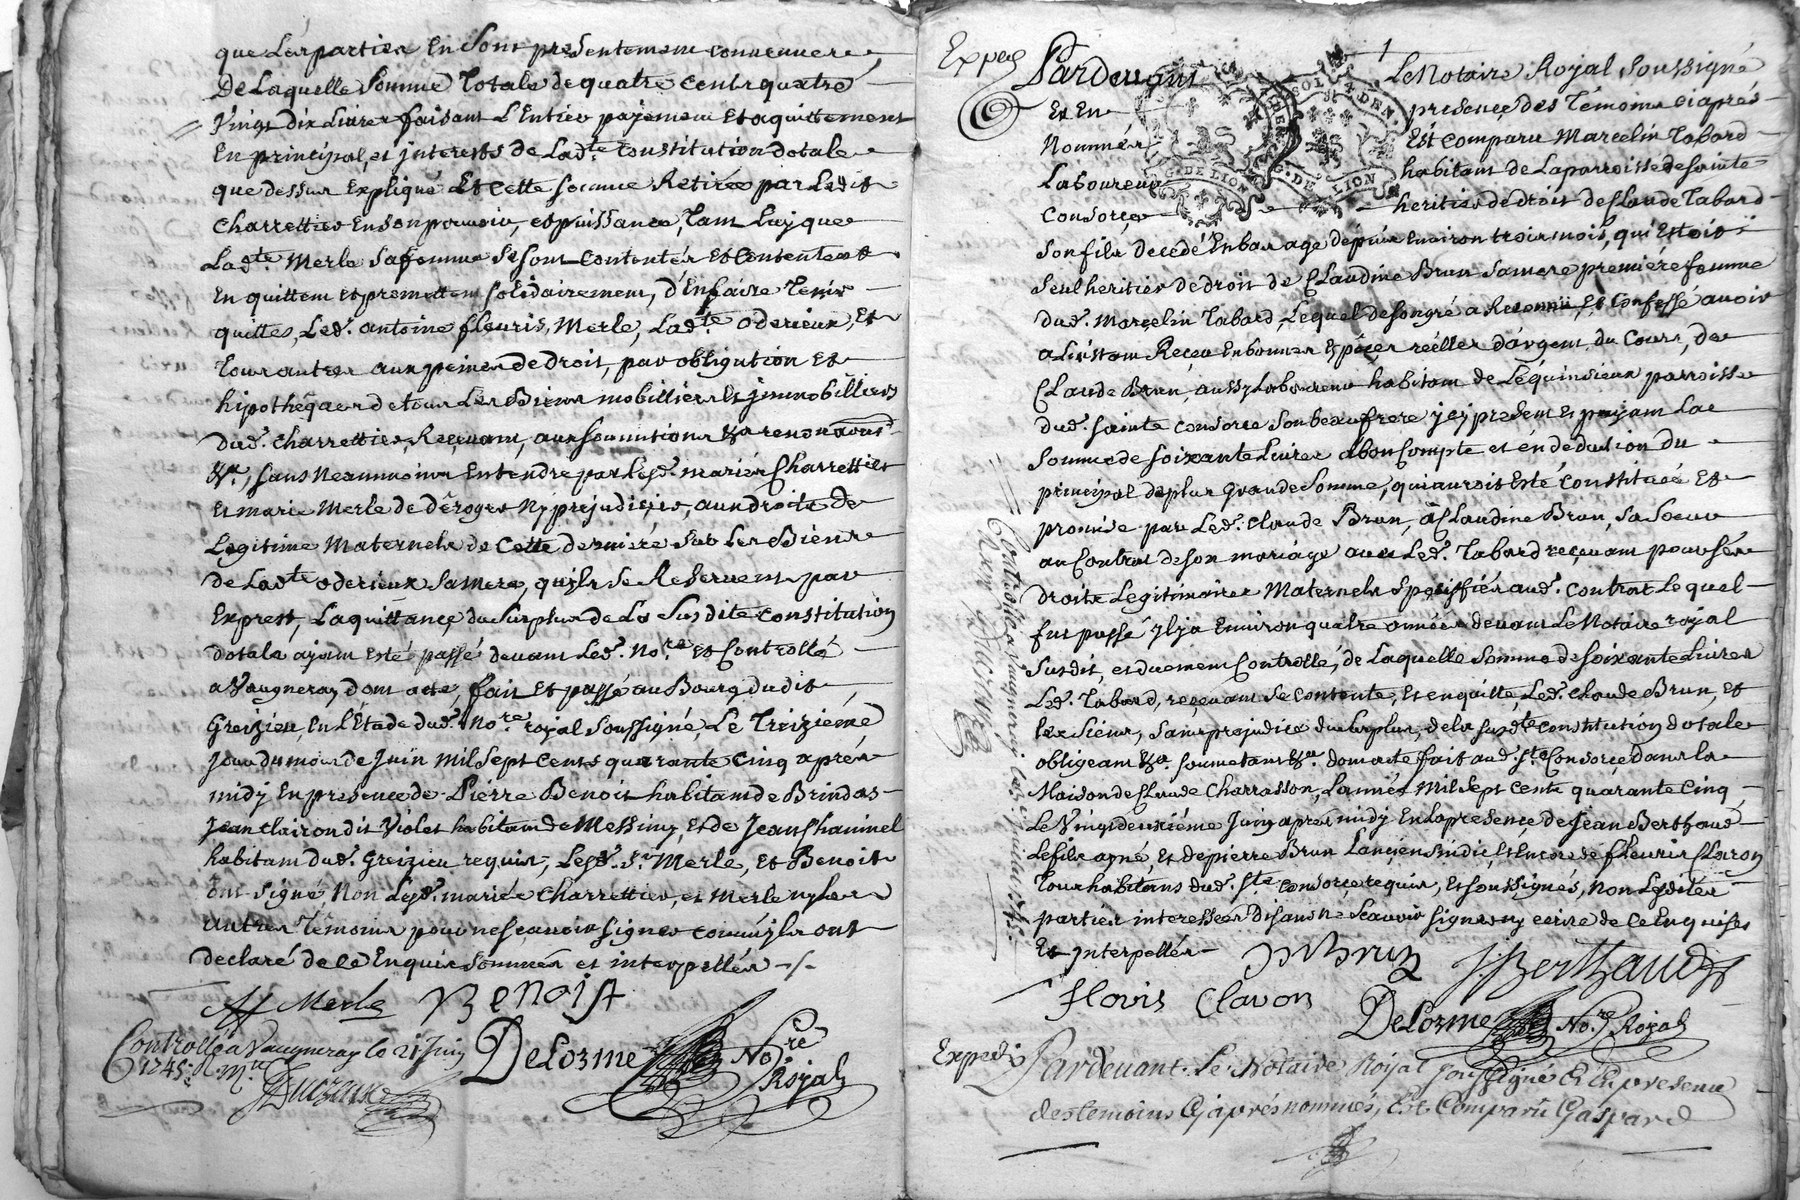 que les parties en sont presentement convenues
De Laquelle somme Totale de quatre cents quatre
Vingt dix Livres faisant L'Entier payement et aquittement
En principal, et jnterests de Lad.te Constitution dotale
que dessus Expliqué Et cette somme Retirée par Ledit
Charrettier En son pouvoir, et puissance, Tant Luy que
Lad.te Merle sa femme se sont Contentés Et Contentent
En quittent et promettent solidairement, d'En faire Tenir
quittes, Led. antoine fleuris, Merle, Lad.te oderieux, Et
Tous autres aux peines de droit, par obligation Et
hipothêques de tous Les Biens mobilliers Et jmmobilliers
dud. Charrettier, Reçevant, aux soumitions &a renon
&a, sans Neanmoins Entendre par Lesd. mariés Charrettier
Et marie Merle de dêroger Ny prejudiçier, aux droits de
Legitime Maternels de Cette derniére sur Les Biens
de Lad.te oderieux sa Mere, qu'jls se Reservent par
Exprest, La quittançe du surplus de La susdite Constitution
dotale ayant Esté passé devant Led. No.re Et Controllé
a Vaugneray dont acte, fait Et passé au Bourg dudit
Greizieu, En L'Etude dud. No.re royal soussigné, Le Treiziéme
jour du mois de Juin Mil sept Cents quarante Cinq aprés
midy En presence de Pierre Benoit habitant de Brindas
jean Clairon dit Violet habitant de Messimy, Et de Jean Chaninel
habitant dud. Greizieu requis, Lesd. Sr Merle, Et Benoit
ont signé, Non Lesd. mariés Charrettier, et Merle ny les
autres Têmoins pour ne sçavoir signer comm'jls ont
declaré de ce Enquis sommés et interpellés
Merle Benoist
Controllé a Vaugneray le 21 Juin
1745
DeLorme No.re
Royal
Exped
Pardevant Le Notaire Royal soussigné
Et En presençe des Témoins ci aprés
Nommés Est comparu Marcelin Tabard
Laboureur habitant de La parroisse de sainte
Consorçe heritier de droit de Claude Tabard
son fils decedé En bas age depuis Environ trois mois, qui Estoit
seul heritier de droit de Claudine Brun sa mere premiere femme
dud. Marcelin Tabard, Lequel de son gré a Reconnu, Et Confessé avoir
a L'instant Reçeu En bonnes Espéçes réelles d'argent du Cours, de
Claude Brun, aussy Laboureur habitant de Lequinsieux parroisse
dud. sainte Consorce son beaufrere jcy present et payant La
somme de soixante Livres a bon Compte et en déduction du
principal de plus Grande somme, qui auroit Esté Constituée Et
promise par Led. Claude Brun, à Claudine Brun, sa soeur
au Contrat de son mariage avec Led. Tabard reçevant pour ses
droits Legitimaires Maternels speciffiés aud. Contrat Lequel
fut passé jl y a Environ quatre années devant Le Notaire royal
susdit, et duement Controllé, de Laquelle somme de soixante Livres
Led. Tabard, reçevant se Contente, Et en quitte, Led. Claude Brun, et
les siens, sans prejudice du surplus, de la susd.te Constitution dotale
obligeant &a. soumetant &a. dont acte fait aud. S.te Consorçe dans la
Maison de Claude Charrasson, L'année Mil sept Cents quarante Cinq
Le Vingt deuxiéme Juin aprés midy En La presence de Jean Berthaud
Le fils ayné, Et de pierre Brun L'ançien sindic, Et Encore de fleuris Claron
Tous habitans dud. S.te Consorçe requis, Et soussignés, non Lesdites
parties interessées disant ne sçavoir signer ny ecrire de ce Enquises
Et jnterpellés
Controllé a Vaugneray
P Brun J. Berthaud
flouris Claron
DeLorme No.re Royal
Exped
Pardevant Le Notaire Royal soussigné Et En presence
des temoins Cy aprés nommés, Est Comparû Gaspard